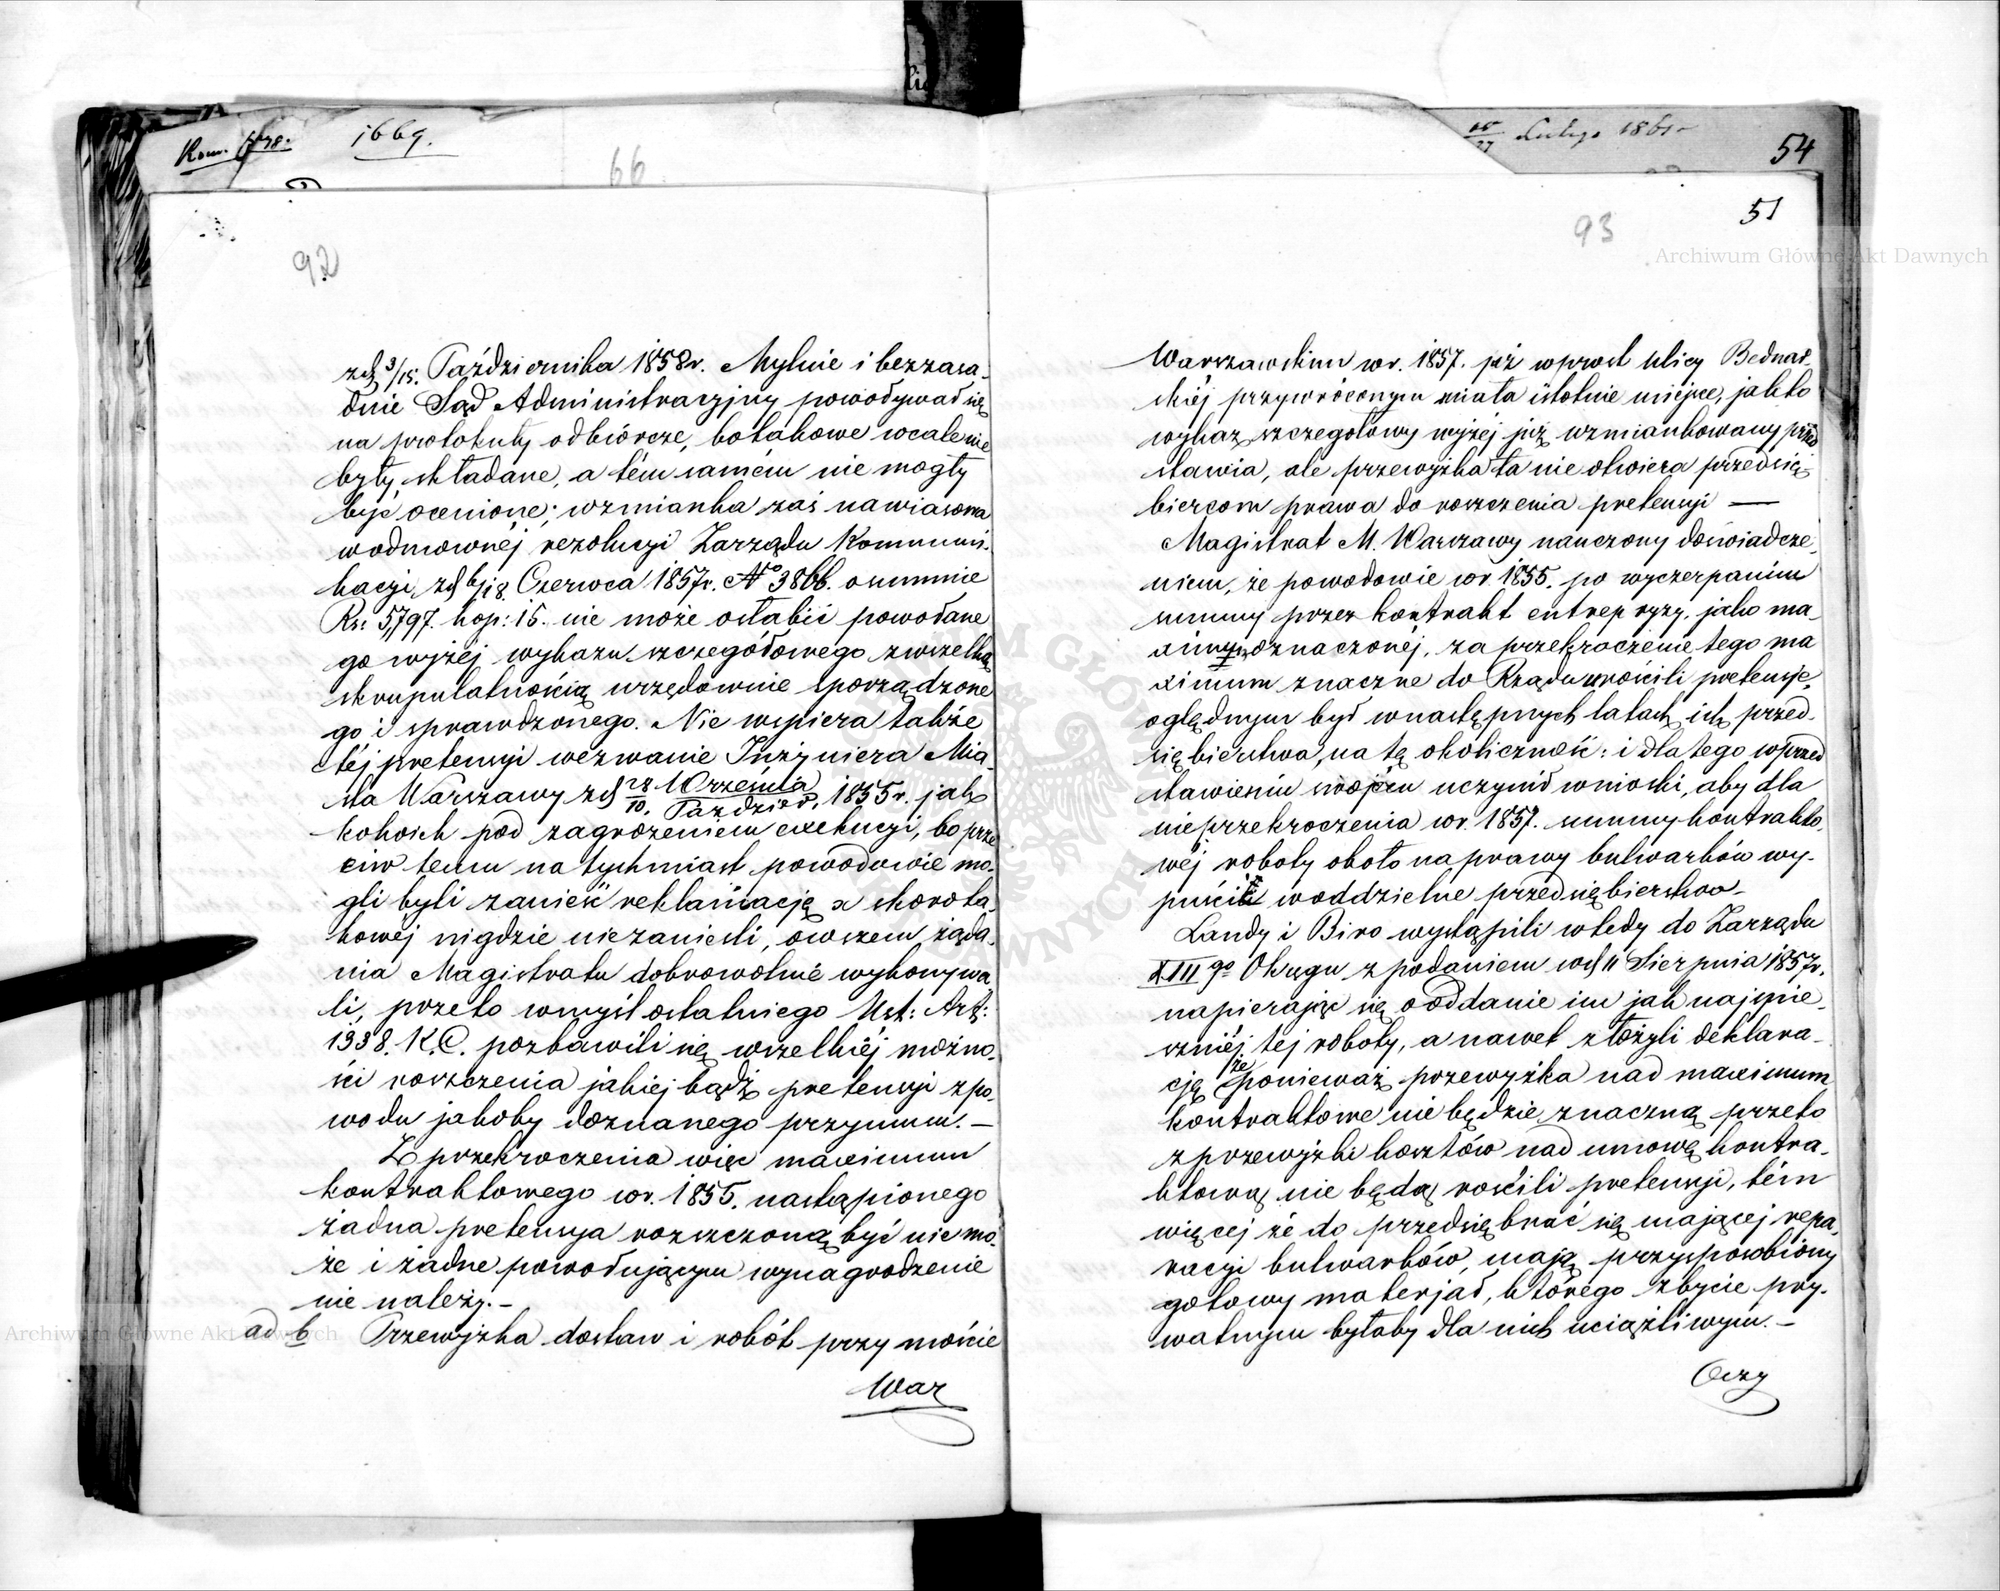 Kom. 1669.
66
92
zd 3/15. Października 1858r. Mylnie i bezzasa-
dnie Sąd Administracyjny powodywał się
na protokuły odbiórcze, bo takowe wcale nie
były składane, a tém samém nie mogły
być ocenione; wzmianka zaś nawiasowa
w odmownéj rezolucyi Zarządu Kommuni-
kacyi, zd 6/18. Czerwca 1857r. No 3866. o summie
Rs: 5,797. kop: 15. nie może osłabić powołane
go wyżéj wykazu szczegółowego z wszelką
skrupulatnością urzędownie sporządzone
go i sprawdzonego. Nie wspiera także
téj pretensyi wezwanie Inżyniera Mia-
sta Warszawy zd 28 Września/10. Paździer. 1855r. jako
kolwiek pod zagrożeniem exekucyi, bo prze
ciw temu natychmiast powodowie mo-
gli byli zanieść reklamacją a skoro ta-
kowéj nigdzie niezanieśli, owszem żąda-
nia Magistratu dobrowolnie wykonywa
li, przeto w myśl ostatniego Ust: Art:
1338. K.C. pozbawili się wszelkiéj możno-
ści roszczenia jakiej bądź pretensyi z po-
wodu jakoby doznanego przymusu. —
Z przekroczenia więc maximum
kontraktowego w r. 1855. nastąpionego
żadna pretensya rozszczoną być nie mo-
że i żadne powodującym wynagrodzenie
nie należy. —
ad b Przewyżka dostaw i robót przy moście
War
15/27 Lutego 1861
54
93
51
Warszawskim w r. 1857. już wprost ulicy Bednar-
skiéj przywróconym miała istotnie miéjsce, jak to
wykaz szczegółowy wyżéj już wzmiankowany przed
stawia, ale przewyżka ta nie otwiera przedsię
biercom prawa do roszczenia pretensyi —
Magistrat M. Warszawy nauczony doświadcze-
niem, że powodowie w r. 1855. po wyczerpaniu
summy przez kontrakt entrepryzy, jako ma-
ximum oznaczonéj, za przekroczenie tego ma
ximum znaczne do Rządu rościli pretensje,
oględnym był w następnych latach ich przed-
siębierstwa, na tę okoliczność: i dla tego w przed
stawieniu swojém uczynił wnioski, aby dla
nieprzekroczenia w r. 1857. summy kontrakto-
wéj roboty około naprawy bulwarków wy-
puścić w oddzielne przedsiębierstwo —
Landy i Biro wystąpili wtedy do Zarządu
XIII go Okręgu z podaniem wd 11 Sierpnia 1857r.
napierając się o oddanie im jak najspie-
szniéj téj roboty, a nawet złożyli deklara-
cję że ponieważ przewyżka nad maximum
kontraktowe nie będzie znaczną przeto
z przewyżki kosztów nad umowę kontra-
ktową nie będą rościli pretensyi, tém
więcej że do przedsiębrać się mającej repa-
racyi bulwarków, mają przysposobiony
gotowy materjał, którego zbycie pry-
watnym byłoby dla nich uciążliwym. —
Oczy
Archiwum Główne Akt Dawnych
Archiwum Główne Akt Dawnych